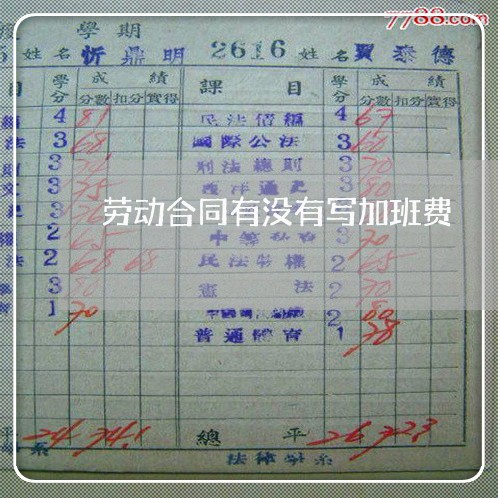 7788.com
學期
姓名 忻鼎明 2616 姓名 賈泰德
目 學分 成績 課目 學分 成績
分數 扣分 實得 分數 扣分 實得
4 81 民法債編 4 67
法 3 68 國際公法 3 60
3 刑法總則 3 70
3 75 西洋通史 3 80
劳动合同有没有写加班费
2 65 3 70
法 2 68 68 民法物權 2 65
3 80 憲法 2 70
1 70 2 80
普通體育 1 78
平 24 74.1 總平 26 72.3
系 法律學系